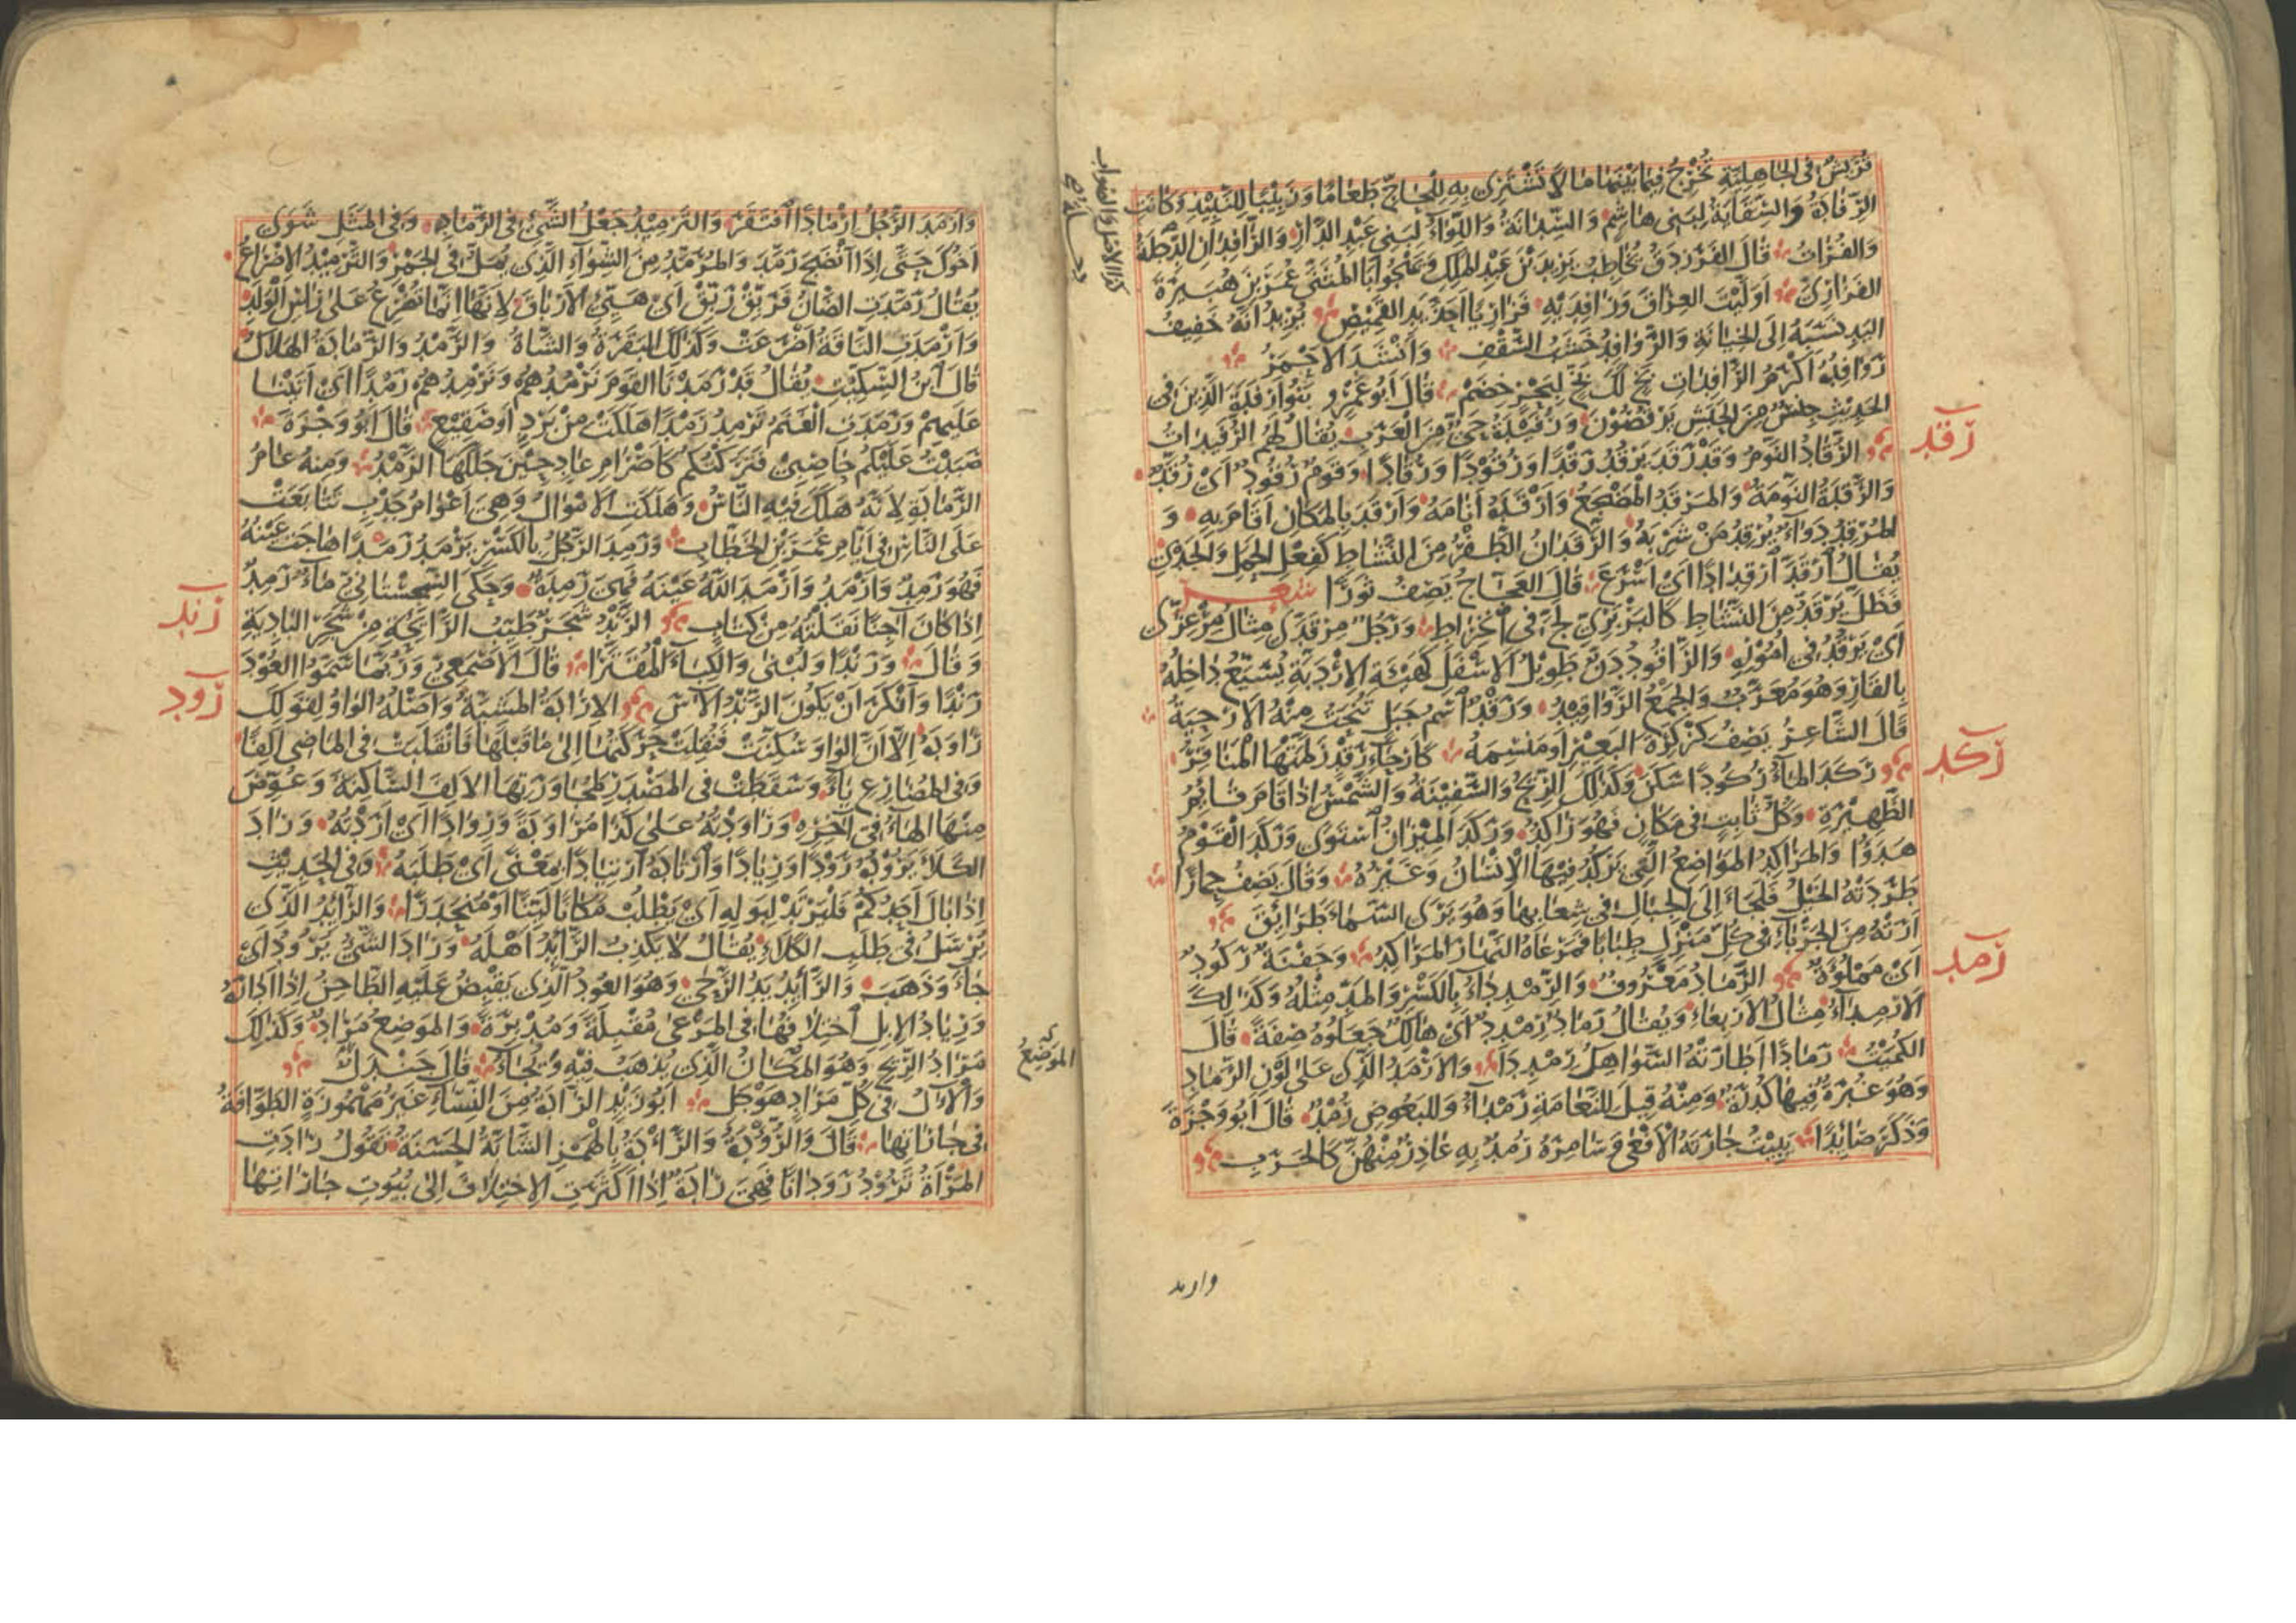 قُرَيْشٌ فى الجَاهِلِيَّةِ تُخْرِجُ فِيمَا بَيْنَهَا مَالاً تَشْتَرِى بِهِ لِلْحَاجِّ طَعَامًا وَزَبِيْبًا لِلنَّبِيْذِ وَكَانَتِ
الرِّفَادَةُ وَالسِّقَايَةُ لِبَنِى هَاشِمٍ وَالسِّدَانَةُ وَاللِّوَاءُ لِبَنِى عَبْدِ الدَّارِ وَالرَّافِدَانِ الدِّجْلَةُ
وَالفُرَاتُ قَالَ الفَرَزْدَقُ يُخَاطِبُ يَزِيدَ بْنَ عَبْدِ المَلِكِ وَيَهْجُو اَبَا المُثَنَّى عُمَرَ بْنَ هُبَيْرَةَ
الفَزَارِىَّ اَوَلَّيْتَ العِرَاقَ وَرَافِدَيْهِ فَزَارِيًّا اَحَذَّ يَدِ القَمِيْصِ يُرِيْدُ اَنَّهُ خَفِيفُ
اليَدِ نَسَبَهُ اِلَى الخِيَانَةِ وَالرَّوَافِدُ خَشَبُ السَّقْفِ وَاَنْشَدَ الاَحْمَرُ
رَوَافِدُهُ اَكْرَمُ الرَّافِدَاتِ بَخٍ لَكَ بَخٍّ لِبَحْرٍ خِضَمّ قَالَ اَبُو عَمْرٍو بَنُو اَرْفِدَةَ الَّذِيْنَ فى
الحَدِيْثِ جِنْسٌ مِنَ الحَبَشِ يَرْقُصُوْنَ وَرُفَيْدَةُ حَىٌّ مِنَ العَرَبِ يُقَالُ لَهُمُ الرُّفَيْدَاتُ
رقد
الرُّقَادُ النَّوْمُ وَقَدْ رَقَدَ يَرْقُدُ رَقْدًا وَرُقُوْدًا وَرُقَادًا وَقَوْمٌ رُقُودٌ اَىْ رُقَّدٌ
وَالرَّقْدَةُ النَّوْمَةُ وَالمَرْقَدُ المَضْجَعُ وَاَرْقَدَهُ اَنَامَهُ وَاَرْقَدَ بِالمَكَانِ اَقَامَ بِهِ وَ
المُرْقِدُ دَوَاءٌ يُرْقِدُ مَنْ شَرِبَهُ وَالرَّقَدَانُ الطَّفْرُ مِنَ النَّشَاطِ كَفِعْلِ الحَمَلِ وَالجَدْىِ
يُقَالُ اَرْقَدَّ اَرْقِدَادًا اَىْ اَسْرَعَ قَالَ العَجَّاجُ يَصِفُ ثَوْرًا شعر
فَظَلَّ يَرْقَدُّ مِنَ النَّشَاطِ كَالبَرْبَرِىِّ لَجَّ فى اِنْخِرَاطِ وَرَجُلٌ مِرْقِدَّى مِثَالُ مِرْعِزَّى
اَىْ يَرْقَدُّ فى اُمُوْرِهِ وَالرَّاقُودُ دَنٌّ طَوِيْلُ الاَسْفَلِ كَهَيْئَةِ الاِرْدَبَّةِ يُسَيَّعُ دَاخِلُهُ
بِالقَارِ وَهُوَ مُعَرَّبٌ وَالجَمْعُ الرَّوَاقِيْدُ وَرَقْدٌ اَسْمُ جَبَلٍ تُنْحَتُ مِنْهُ الاَرْحِيَةُ
قَالَ الشَّاعِرُ يَصِفُ كِرْكِرَةَ البَعِيْرِ اَو مَنْسِمَهُ كَاَرْحَآءِ رَقْدٍ زَلَّمَتْهَا المَنَاقِرُ
ركد
رَكَدَ المَاءُ رُكُودًا سَكَنَ وَكَذٰلِكَ الرِّيْحُ وَالسَّفِيْنَةُ وَالشَّمْسُ اِذَا قَامَ قَايِمُ
الظَّهِيْرَةِ وَكُلُّ ثَابِتٍ فى مَكَانٍ فَهُوَ رَاكِدٌ وَرَكَدَ المِيْزَانُ اَسْتَوَى وَرَكَدَ القَوْمُ
هَدَؤُا وَالمَرَاكِدُ المَوَاضِعُ الَّتِى يَرْكُدُ فِيْهَا الاِنْسَانُ وَغَيْرُهُ وَقَالَ يَصِفُ حِمَارًا
طَرَدَتْهُ الخَيْلُ فَلَجَاَ اِلَى الجِبَالِ فى شِعَابِهَا وَهُوَ يَرَى السَّمَاءَ طَرَائِقَ
اَرَتْهُ مِنَ الجَرْبَاءِ فى كُلِّ مَنْزِلٍ طِبَابًا فَمَرْعَاهُ النَّهَارَ المَرَاكِدُ وَجَفْنَةٌ رَكُودٌ
رمد
اَىْ مَمْلُؤَةٌ الرَّمَادُ مَعْرُوفٌ وَالرِّمْدِدَاءُ بِالكَسْرِ وَالمَدِّ مِثْلُهُ وَكَذٰلِكَ
الاَرْمِدَاءُ مِثَالُ الاَرْبِعَاءِ وَيُقَالُ رَمَادٌ رِمْدِدٌ اَىْ هَالِكٌ جَعَلُوهُ صِفَةً قَالَ
الكُمَيْتُ رَمَادًا اَطَارَتْهُ السَّوَاهِكُ رِمْدِدَا وَالاَرْمَدُ الَّذِى عَلَى لَوْنِ الرَّمَادِ
وَهُوَ غُبْرَةٌ فِيهَا كُدْرَةٌ وَمِنْهُ قِيلَ لِلنَّعَامَةِ رَمْدَآءُ وَلِلبَعُوضِ رُمْدٌ قَالَ اَبُو وَجْزَةَ
وَذَكَرَ صَائِدًا يَبِيْتُ جَارَتَهُ الاَفْعَى وَسَامِرَهُ رُمْدٌ بِهِ عَاذِرٌ مِنْهُنَّ كَالجَرَبِ
وارمد
وَاَرْمَدَ الرَّجُلُ اِرْمَادًا اَفْتَقَرَ وَالتَّرْمِيْدُ جَعْلُ الشَّىْءِ فى الرَّمَادِ وَفى المَثَلِ شَوَى
اَخُوْكَ حَتَّى اِذَا اَنْضَجَ رَمَّدَ وَالمُرَمَّدُ مِنَ الشِّوَآءِ الَّذِى يُمَلُّ فى الجَمْرِ وَالتَّرْمِيْدُ الاِضْرَاعُ
يُقَالُ رَمَّدَتِ الضَّاْنُ فَرَبِّقْ رَبِّقْ اَىْ هَيِّئِ الاَرْبَاقَ لِاَنَّهَا اِنَّمَا تُضْرِعُ عَلَى رَاْسِ الوَلَدِ
وَاَرْمَدَتِ النَّاقَةُ اَضْرَعَتْ وَكَذٰلِكَ البَقَرَةُ وَالشَّاةُ وَالرَّمْدُ وَالرَّمَادَةُ الهَلَاكُ
قَالَ اَبْنُ السِّكِّيْتِ يُقَالُ قَدْ رَمَدْنَا القَوْمَ نَرْمُدُهُمْ وَنَرْمِدُهُمْ رَمْدًا اَىْ اَتَيْنَا
عَلَيهِمْ وَرَمَدَتِ الغَنَمُ تَرْمِدُ رَمْدًا هَلَكَتْ مِنْ بَرْدٍ اَو صَقِيْعٍ قَالَ اَبُو وَجْزَةَ
صَبَبْتُ عَلَيْكُمْ حَاصِبِى فَتَرَكْتُكُمْ كَاَصْرَامِ عَادٍ حِيْنَ جَلَّلَهَا الرَّمْدُ وَمِنْهُ عَامُ
الرَّمَادَةِ لِاَنَّهُ هَلَكَ فِيْهِ النَّاسُ وَهَلَكَتِ الاَمْوَالُ وَهِىَ اَعْوَامُ جَدْبٍ تَتَابَعَتْ
عَلَى النَّاسِ فى اَيَّامِ عُمَرَ بْنِ الخَطَّابِ وَرَمِدَ الرَّجُلُ بِالكَسْرِ يَرْمَدُ رَمَدًا هَاجَتْ عَيْنُهُ
فَهُوَ رَمِدٌ وَاَرْمَدُ وَاَرْمَدَ اللّٰهُ عَيْنَهُ فَهِىَ رَمِدَةٌ وَحَكَى السِّجِسْتَانِىُّ مَاءٌ رَمِدٌ
رند
اِذَا كَانَ آجِنًا نَقَلْتُهُ مِنْ كِتَابٍ الرَّنْدُ شَجَرٌ طَيِّبُ الرَّائِحَةِ مِنْ شَجَرِ البَادِيَةِ
وَقَالَ وَرَنْدًا وَلُبْنَى وَالكِبَاءَ المُقَتَّرَا قَالَ الاَصْمَعِىُّ وَرُبَّمَا سَمَّوُا العُوْدَ
رود
رَنْدًا وَاَنْكَرَ اَنْ يَكُونَ الرَّنْدُ الآسَ الاِرَادَةُ المَشِيَّةُ وَاَصْلُهُ الوَاوُ لِقَوْلِكَ
رَاوَدَهُ اِلَّا اَنَّ الوَاوَ سُكِّنَتْ فَنُقِلَتْ حَرَكَتُهَا اِلَى مَا قَبْلَهَا فَانْقَلَبَتْ فى المَاضِى اَلِفًا
وَفى المُضَارِعِ يَاءً وَسَقَطَتْ فى المَصْدَرِ لِمُجَاوَرَتِهَا الاَلِفَ السَّاكِنَةَ وَعُوِّضَ
مِنْهَا الهَاءُ فى آخِرِهِ وَرَاوَدْتُهُ عَلَى كَذَا مُرَاوَدَةً وَرِوَادًا اَىْ اَرَدْتُهُ وَرَادَ
الكَلَاَ يَرُوْدُهُ رَوْدًا وَرِيَادًا وَاَرْتَادَهُ اَرْتِيَادًا بِمَعْنًى اَىْ طَلَبَهُ وَفى الحَدِيْثِ
اِذَا بَالَ اَحَدُكُمْ فَلْيَرْتَدْ لِبَوْلِهِ اَىْ يَطْلُبْ مَكَانًا لَيِّنًا اَوْ مُنْحَدَرًا وَالرَّايِدُ الَّذِى
يُرْسَلُ فى طَلَبِ الكَلَاءِ يُقَالُ لَا يَكْذِبُ الرَّايِدُ اَهْلَهُ وَرَادَ الشَّىْءُ يَرُوْدُ اَىْ
جَاءَ وَذَهَبَ وَالرَّايِدُ يَدُ الرَّحَى وَهُوَ العُوْدُ الَّذِى يَقْبِضُ عَلَيْهِ الطَّاحِنُ اِذَا اَدَارَهُ
وَرِيَادُ الاِبِلِ اَخْتِلَافُهَا فى المَرْعَى مُقْبِلَةً وَمُدْبِرَةً وَالمَوضِعُ مَرَادٌ وَكَذٰلِكَ
مَرَادُ الرِّيْحِ وَهُوَ المَكَانُ الَّذِى يُذْهَبُ فِيْهِ وَيُجَاءُ قَالَ جَنْدَلٌ
الموضع
وَالآلُ فى كُلِّ مَرَادٍ هَوْجَلِ اَبُو زَيْدٍ الرَّادَةُ مِنَ النِّسَاءِ غَيْرَ مَهْمُوْزَةٍ الطَوَّافَةُ
فى جَارَاتِهَا قَالَ وَالرُّؤْدَةُ وَالرَّاْدَةُ بِالهَمْزِ الشَّابَّةُ الحَسَنَةُ تَقُولُ رَادَتِ
المَرْاَةُ تَرُوْدُ رَوَدَانًا فَهِىَ رَادَةٌ اِذَا اَكْثَرَتِ الاِخْتِلَافَ اِلَى بُيُوتِ جَارَاتِهَا